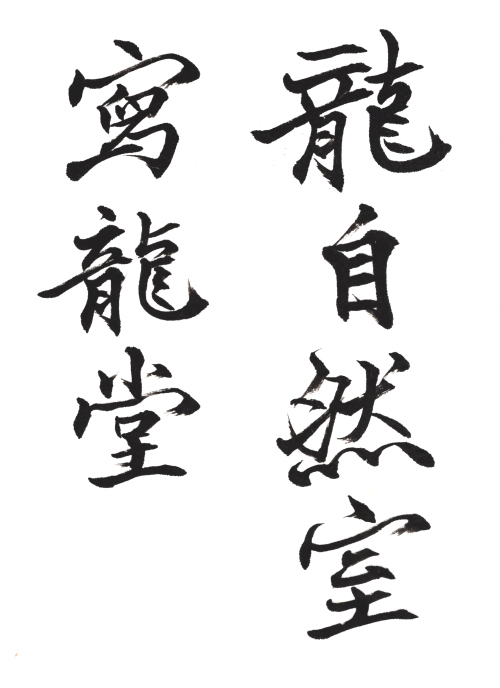 龍自然室
寫龍堂